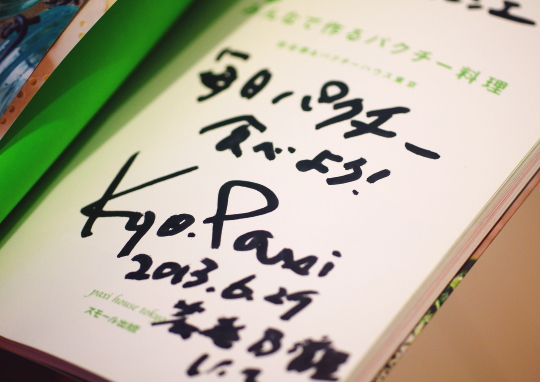 みんなで作るパクチー料理
毎日パクチー
食べよう!
Kyo.Paxi
2013.6.29
paxi house tokyo
スモール出版
にて